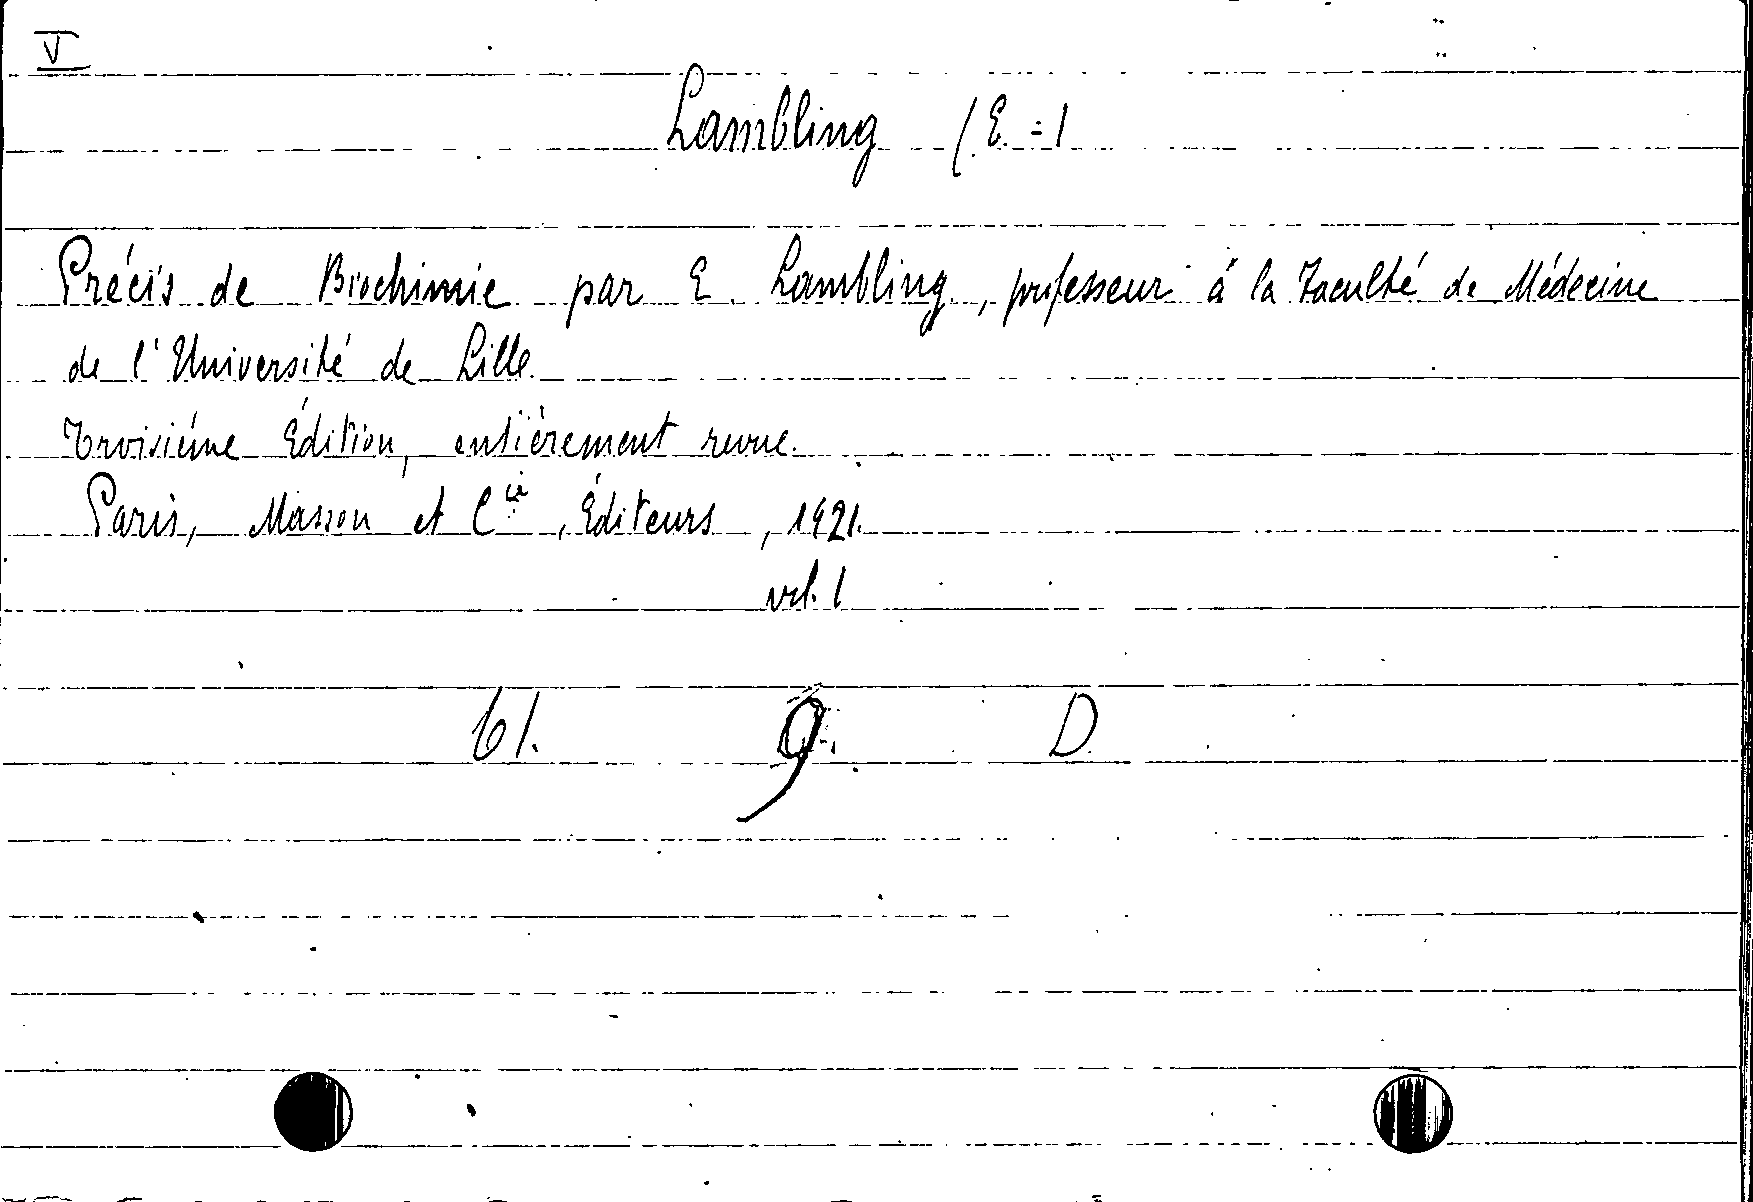 V
Lambling (E.-)
Précis de Biochimie par E. Lambling, professeur à la Faculté de Médecine
de l'Université de Lille.
Troisième Édition, entièrement revue.
Paris, Masson et Cie, Éditeurs, 1921.
vol. 1
61. 9. D